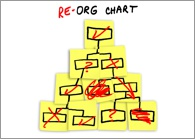 RE-ORG CHART
?